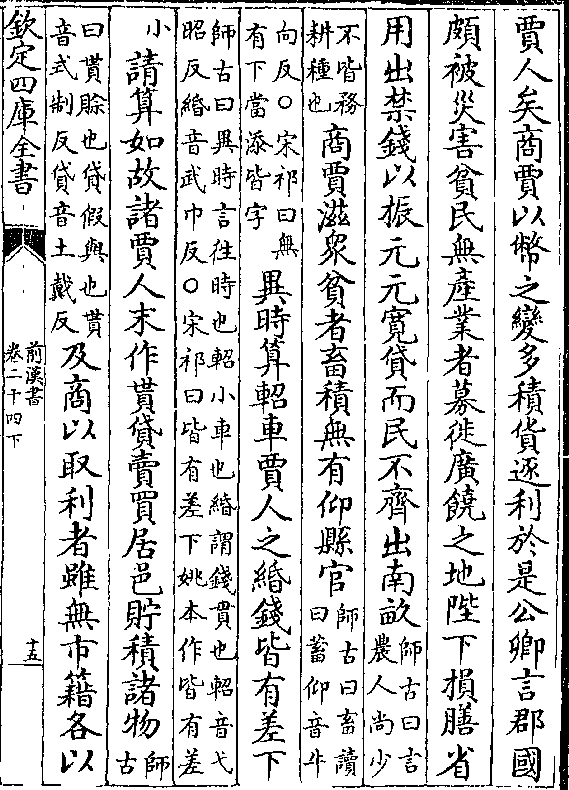 賈人矣商賈以幣之變多積貨逐利於是公卿言郡國
頗被災害貧民無產業者募徙廣饒之地陛下損膳省
用出禁錢以振元元寬貸而民不齊出南畝
師古曰言
農人尚少
不皆務
耕種也
商賈滋眾貧者畜積無有仰縣官
師古曰畜讀
曰蓄仰音牛
向反○宋祁曰無
有下當添皆字
異時算軺車賈人之緡錢皆有差下
師古曰異時言徃時也軺小車也緡謂錢貫也軺音弋
昭反緡音武巾反○宋祁曰皆有差下姚本作皆有差
小
請算如故諸賈人末作貰貸賣買居邑貯積諸物
師
古
曰貰賒也貸假與也貰
音式制反貸音土戴反
及商以取利者雖無市籍各以
欽定四庫全書
前漢書
卷二十四下
十五